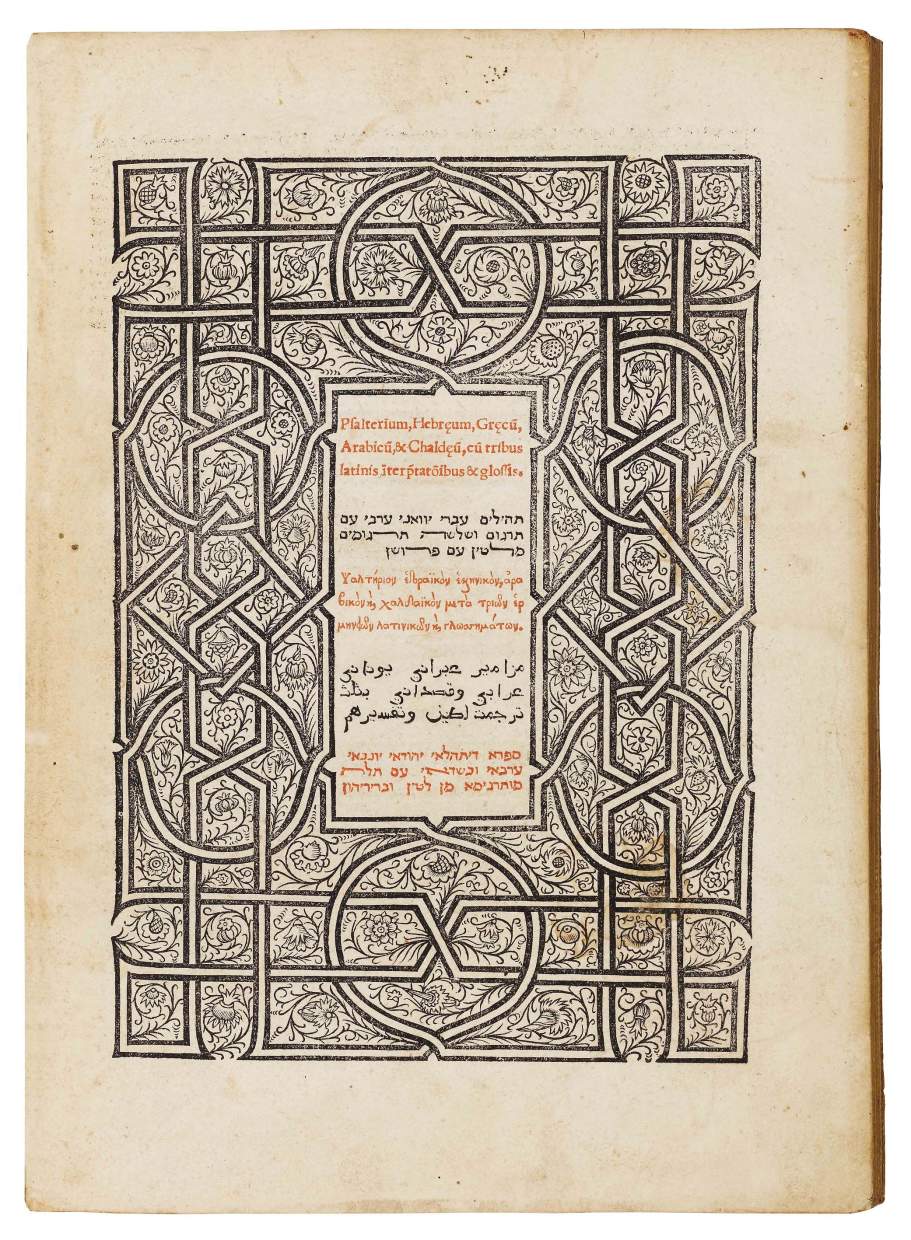 Pſalterium, Hebręum, Gręcū,
Arabicū, & Chaldęū, cū tribus
latinis īterp̄tatōibus & gloſſis.
תהילים עברי יוואני ערבי עם
תרגום ושלשה תרגומים
מלטין עם פרושן
Ψαλτήριον ἑβραϊκὸν ἑλληνικὸν, ἀρα
βικὸν καὶ χαλδαϊκὸν μετὰ τριῶν ἑρ
μηνειῶν λατινικῶν καὶ γλωσσημάτων.
مزامير عبراني يوناني
عرابي وقصداني بثلث
ترجمت لطين وتفسيرهم
ספרא דיתהלאי יהודאי יונבאי
ערבאי וכשדאי עם תלת
פותרניסא מן לטין ובריריהון